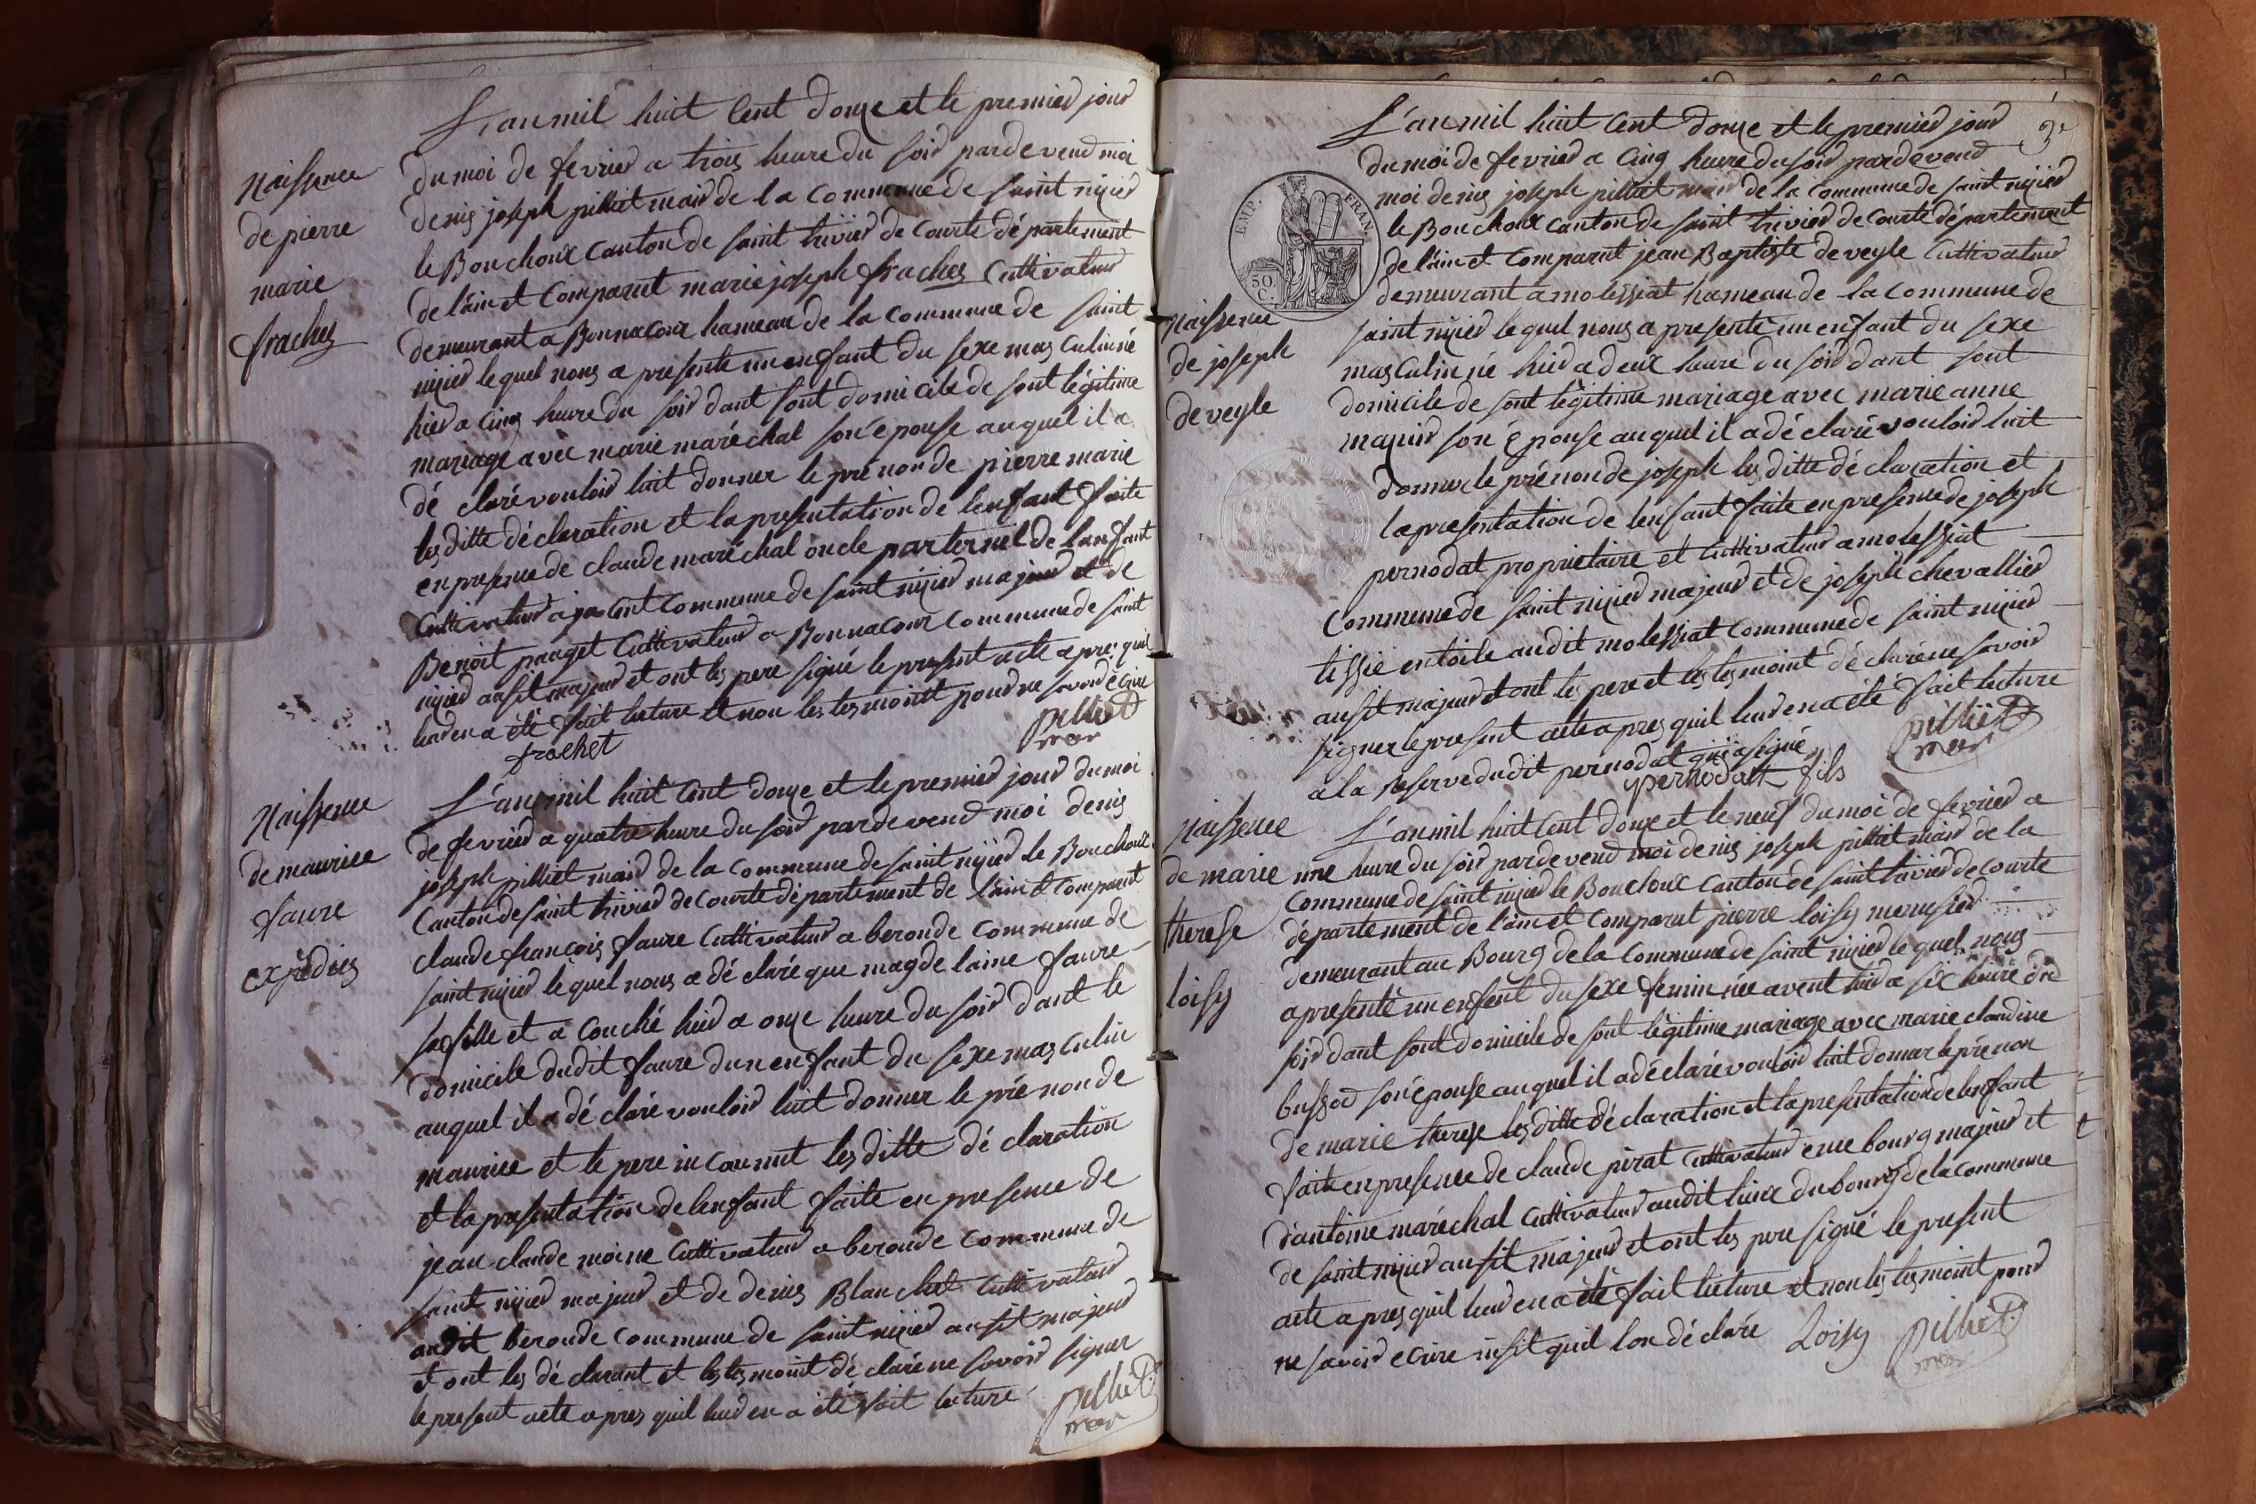 Naissence
de pierre
marie
frachez
L'an mil huit Cent douze et le premier jour
du moi de fevrier a trois heure du soir pardevend moi
denis joseph pilliet mair de la commune de saint nizier
le Bouchoux canton de saint trivier de courte département
de l'ain et comparut marie joseph frachez Cuttivateur
demeurant a Bonnacour hameau de la commune de saint
nizier le quel nous a presenté un enfant du sexe mas culin né
hier a cinq heure du soir dant sont domicile de sont légitime
mariage avec marie maréchal son épouse au quel il a
dé claré vouloir luit donner le pré non de pierre marie
les ditte déclaration et la presentation de l'enfant faite
en presence de claude maréchal oncle parternel de l'anfant
Cuttivateur a commune de saint nizier majeur et de
Benoit pauget Cuttivateur a Bonnacour commune de saint
nizier ausit majeur et ont les pere signé le present acte a pres quil
leur en a été fait lecture et non les tesmoint pour ne savoir écrire
frachet
pilliet
mair
Naissence
de maurice
faure
expédies
L'an mil huit Cent douze et le premier jour du moi
de fevrier a quatre heure du soir pardevend moi denis
joseph pilliet mair de la commune de saint nizier le Bouchoux
Canton de saint trivier de courte département de l'ain et comparut
claude françois faure Cuttivateur a beronde commune de
saint nizier le quel nous a dé claré que magdelaine faure
sa fille et a couché hier a onze heure du soir dant le
domicile dudit faure dun enfant du sexe mas culin
au quel il a dé claré vouloir luit donner le pré non de
maurice et le pere inconnut les ditte dé claration
et la presentation de lenfant faite en presence de
jean claude moine Cuttivateur a beronde commune de
saint nizier majeur et de denis Blanchet Cuttivateur
audit beronde commune de saint nizier ausit majeur
et ont les dé clarant et les tesmoint dé claré ne savoir signer
le present acte apres quil leur en a été fait lecture
pilliet
mair
Naissence
de joseph
deveyle
EMP. FRAN.
50 C.
L'an mil huit Cent douze et le premier jour
du moi de fevrier a Cinq heure du soir pardevend
moi denis joseph pilliet mair de la commune de saint nizier
le Bouchoux canton de saint trivier de courte département
de l'ain et comparut jean Baptiste deveyle Cuttivateur
demeurant a molessiat hameau de la commune de
saint nizier le quel nous a presenté un enfant du sexe
mas culin né hier a deux heure du soir dant sont
domicile de sont légitime mariage avec marie anne
son épouse au quel il a dé claré vouloir luit
donner le prénon de joseph les ditte dé claration et
la presentation de lenfant faite en presence de joseph
pernodat propriétaire et Cuttivateur a molessiat
commune de saint nizier majeur et de joseph chevallier
tissié en toile audit molessiat commune de saint nizier
ausit majeur et ont les pere et les tesmoint déclaré ne savoir
signer le present acte apres quil leur en a été fait lecture
a la reserve dudit pernodat qui a signé
pernodat fils
pilliet
mair
Naissence
de marie
therese
loisy
L'an mil huit Cent douze et le neuf du moi de fevrier a
une heure du soir pardevend moi denis joseph pilliet mair de la
commune de saint nizier le Bouchoux canton de saint trivier de courte
département de l'ain et comparut pierre loisy menusier
demeurant au Bourg de la commune de saint nizier le quel nous
a presenté un enfent du sexe feminin née avent hier a six heure du
soir dant sont domicile de sont légitime mariage avec marie claudine
bussod son épouse au quel il a déclaré vouloir luit donner le prénon
de marie therese les ditte déclaration et la presentation de lenfant
faite en presence de claude pirat Cuttivateur bourg majeur et
d'antoine maréchal Cuttivateur audit lieux du bourg de la commune
de saint nizier ausit majeur et ont les pere signé le present
acte apres quil leur en a été fait lecture et non les tesmoint pour
ne savoir écrire insit quil lon déclaré
Loisy
pilliet
mair